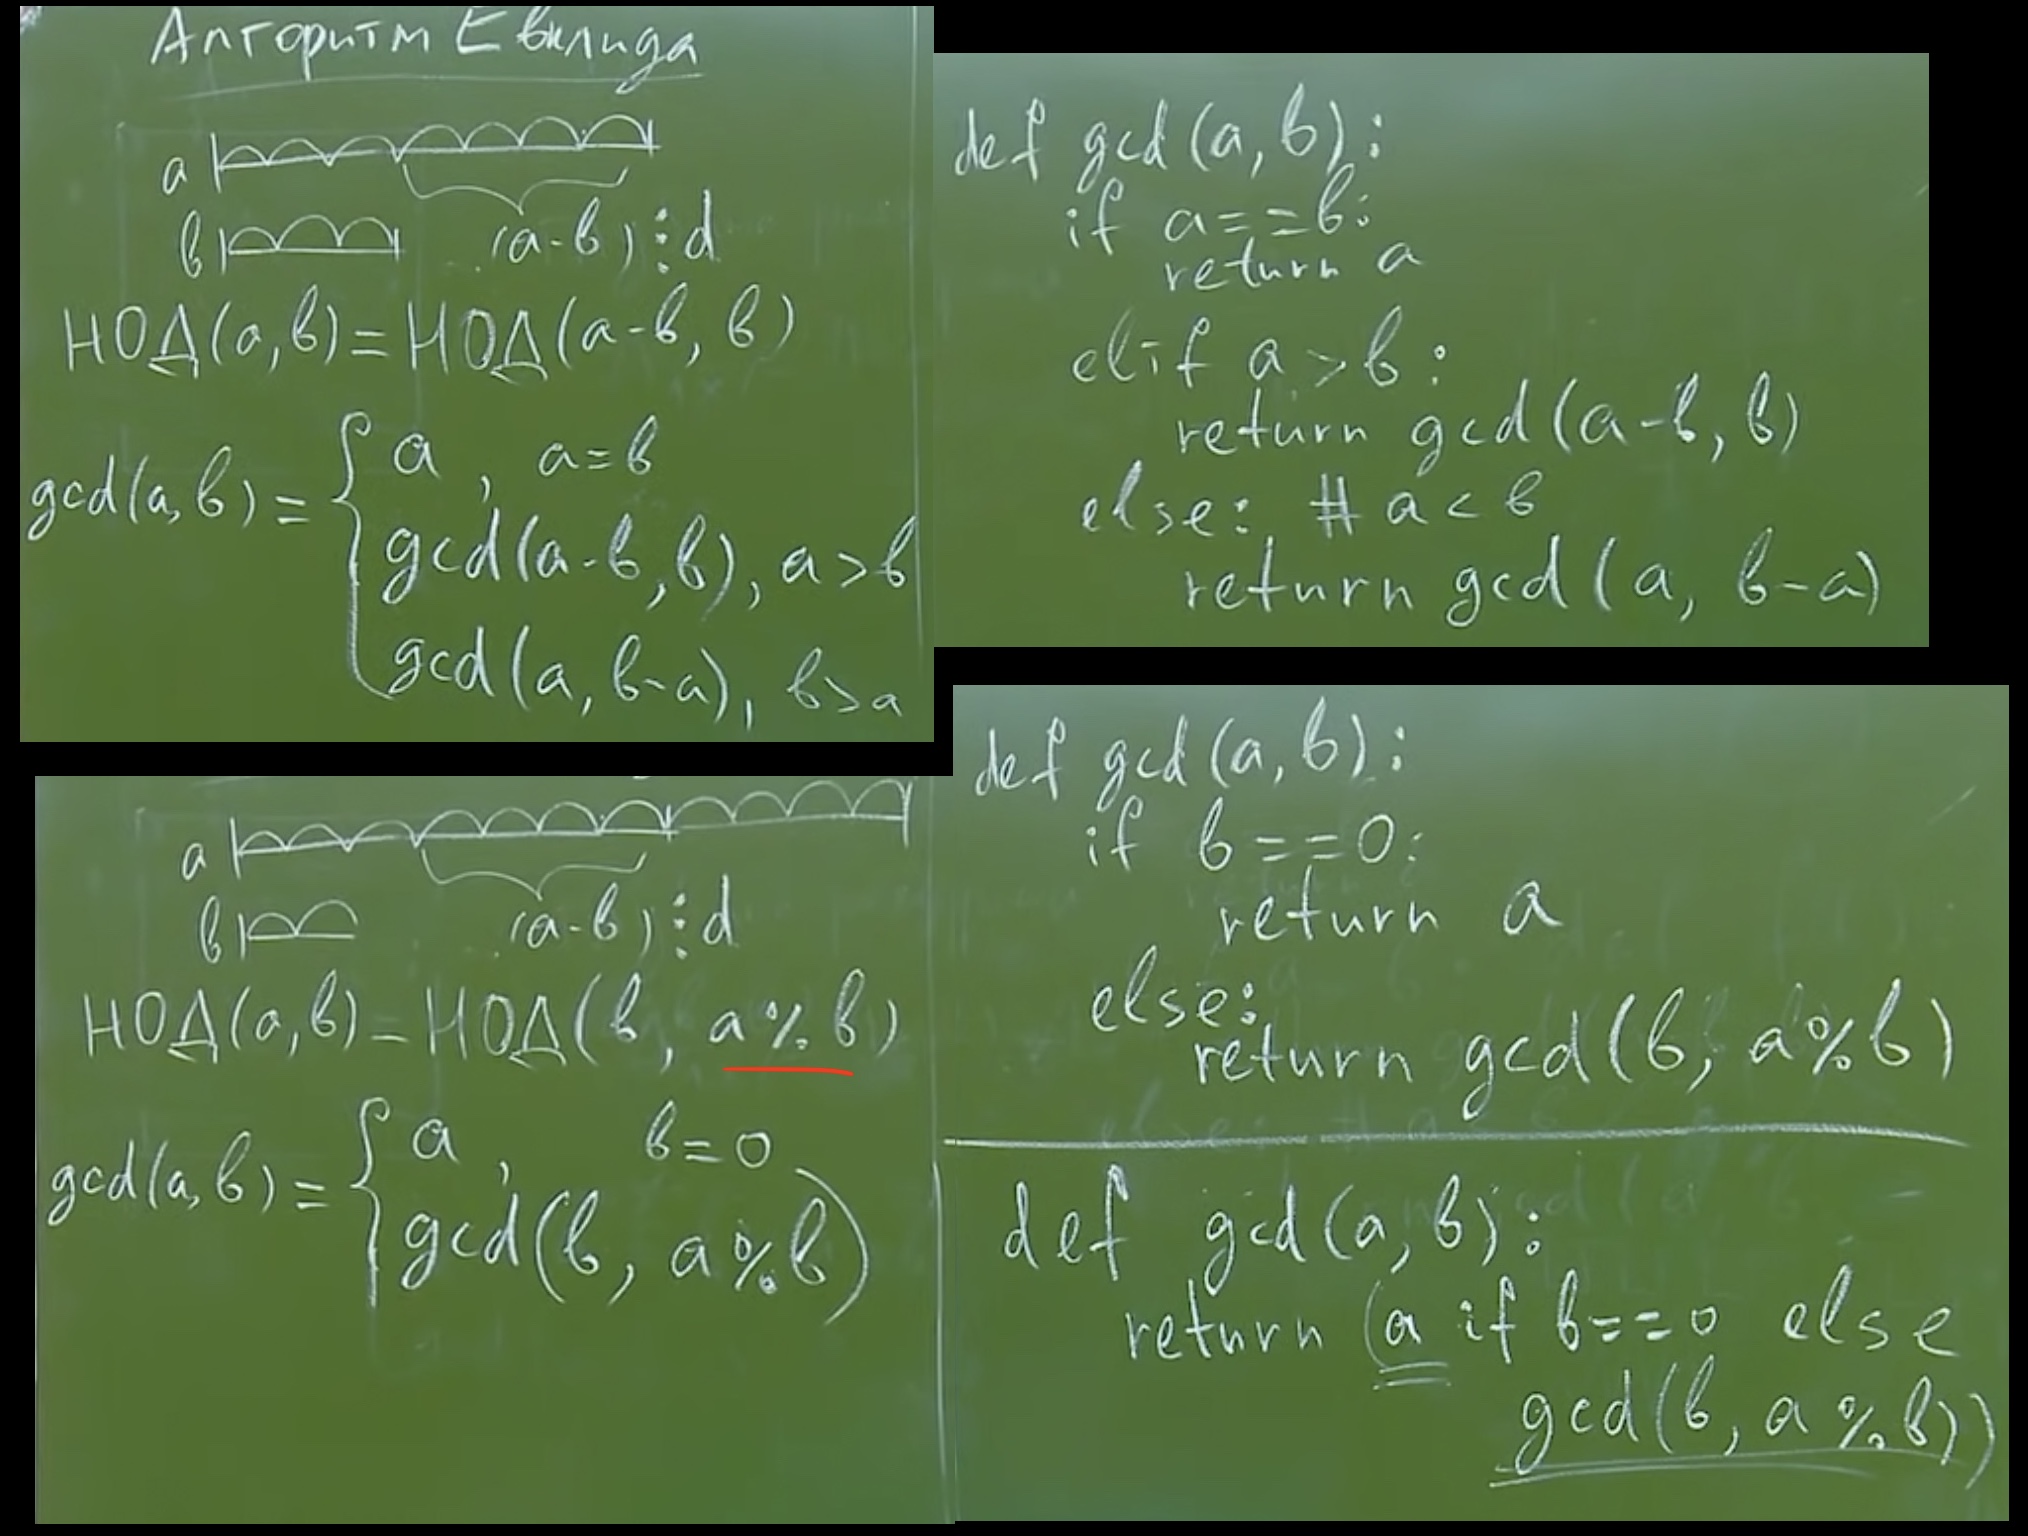 Алгоритм Евклида
a
в (a-в) ⋮ d
НОД(a,в)=НОД(a-в, в)
gcd(a,в) = { a , a=в
gcd(a-в,в), a>в
gcd(a, в-a), в>a
def gcd(a,в):
if a==в:
return a
elif a>в:
return gcd(a-в, в)
else: # a<в
return gcd(a, в-a)
a
в (a-в) ⋮ d
НОД(a,в)=НОД(в, a%в)
gcd(a,в) = { a , в=0
gcd(в, a%в)
def gcd(a,в):
if в==0:
return a
else:
return gcd(в, a%в)
def gcd(a,в):
return (a if в==0 else
gcd(в, a%в))